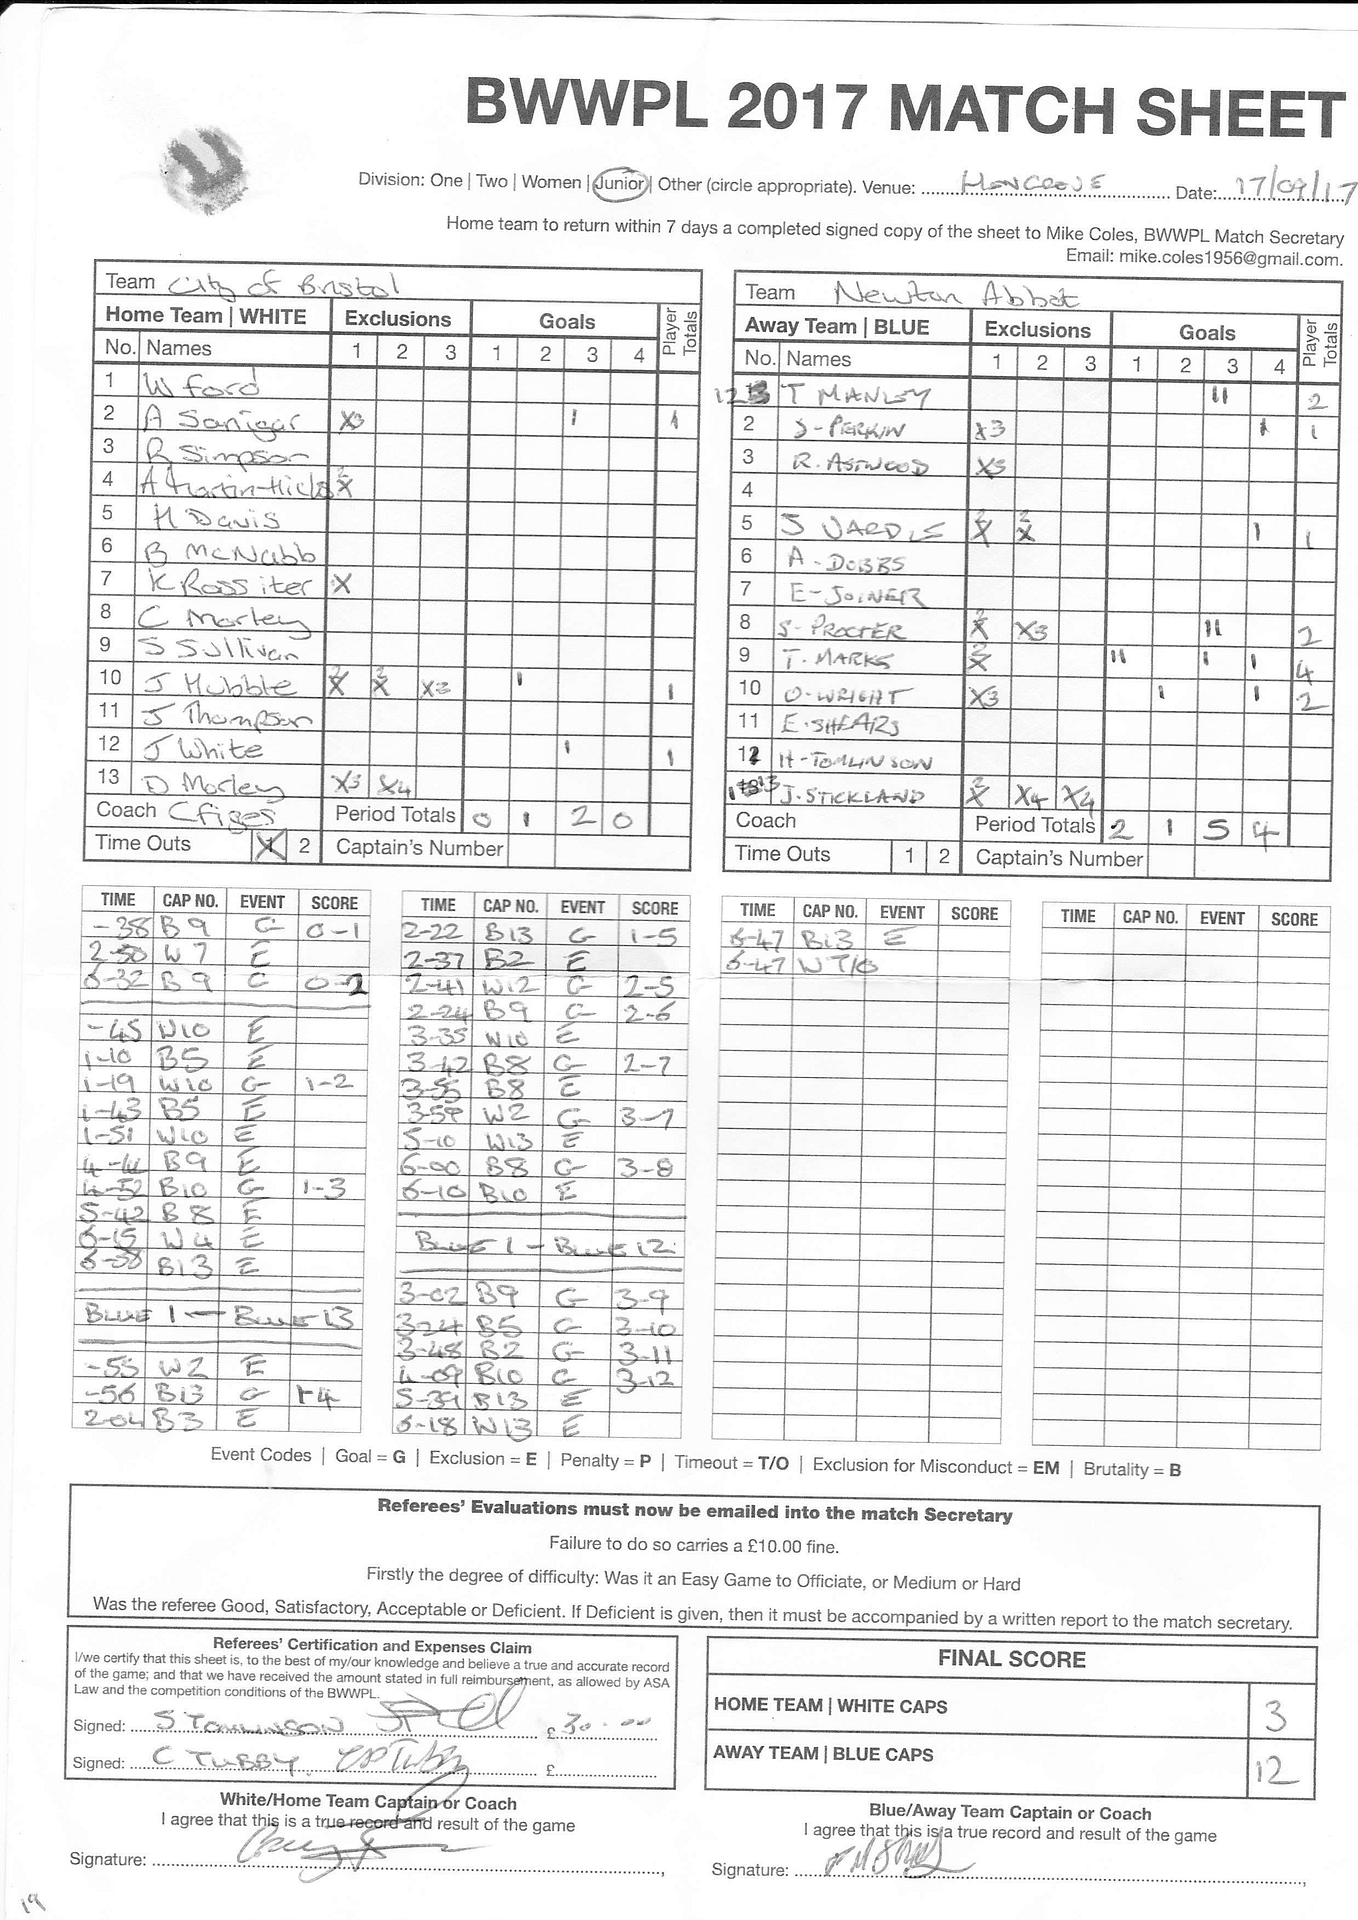 BWWPL 2017 MATCH SHEET
Division: One | Two | Women | Junior | Other (circle appropriate). Venue: Date: 17/09/17
Home team to return within 7 days a completed signed copy of the sheet to Mike Coles, BWWPL Match Secretary
Email: mike.coles1956@gmail.com.
Team City of Bristol
Home Team | WHITE Exclusions Goals Player Totals
No. Names 1 2 3 1 2 3 4
1 W Ford
2 A Sanigar X3 1 1
3 R Simpson
4 A Martin-Hicks X2
5 H Davis
6 B McNabb
7 K Rossiter X
8 C Morley
9 S Sullivan
10 J Hubble X2 X2 X3 1 1
11 J Thompson
12 J White 1 1
13 D Morley X3 X4
Coach C figes Period Totals 0 1 2 0
Time Outs 1 2 Captain's Number
Team Newton Abbot
Away Team | BLUE Exclusions Goals Player Totals
No. Names 1 2 3 1 2 3 4
12 T MANLEY 11 2
2 S-PERKIN X3 1 1
3 R. ASTWOOD X3
4
5 S VARDIS X2 X2 1 1
6 A-DOBBS
7 E-JOINER
8 S-PROCTER X2 X3 11 2
9 T. MARKS X2 11 1 1 4
10 O-WRIGHT X3 1 1 2
11 E. SHEARS
12 H-TOMLINSON
13 J. STICKLAND X2 X4 X4
Coach Period Totals 2 1 5 4
Time Outs 1 2 Captain's Number
TIME CAP NO. EVENT SCORE
-38 B9 G 0-1
2-50 W7 E
6-32 B9 G 0-2
-45 W10 E
1-10 B5 E
1-19 W10 G 1-2
1-43 B5 E
1-51 W10 E
B9 E
4-52 B10 G 1-3
5-42 B8 E
6-15 W4 E
6-38 B13 E
BLUE 1 - BLUE 13
-55 W2 E
-56 B13 G 1-4
2-04 B3 E
TIME CAP NO. EVENT SCORE
2-22 B13 G 1-5
2-37 B2 E
2-41 W12 G 2-5
2-24 B9 G 2-6
3-35 W10 E
3-42 B8 G 2-7
3-55 B8 E
3-59 W2 G 3-7
5-10 W13 E
6-00 B8 G 3-8
6-10 B10 E
BLUE 1 - BLUE 12
3-02 B9 G 3-9
3-24 B5 G 3-10
3-48 B2 G 3-11
4-09 B10 G 3-12
5-39 B13 E
6-18 W13 E
TIME CAP NO. EVENT SCORE
6-47 B13 E
6-47 W T/O
TIME CAP NO. EVENT SCORE
Event Codes | Goal = G | Exclusion = E | Penalty = P | Timeout = T/O | Exclusion for Misconduct = EM | Brutality = B
Referees' Evaluations must now be emailed into the match Secretary
Failure to do so carries a £10.00 fine.
Firstly the degree of difficulty: Was it an Easy Game to Officiate, or Medium or Hard
Was the referee Good, Satisfactory, Acceptable or Deficient. If Deficient is given, then it must be accompanied by a written report to the match secretary.
Referees' Certification and Expenses Claim
I/we certify that this sheet is, to the best of my/our knowledge and believe a true and accurate record
of the game; and that we have received the amount stated in full reimbursement, as allowed by ASA
Law and the competition conditions of the BWWPL.
Signed: S TOMLINSON £ 30.00
Signed: C TUBBY £
FINAL SCORE
HOME TEAM | WHITE CAPS 3
AWAY TEAM | BLUE CAPS 12
White/Home Team Captain or Coach
I agree that this is a true record and result of the game
Signature:
Blue/Away Team Captain or Coach
I agree that this is a true record and result of the game
Signature:
19